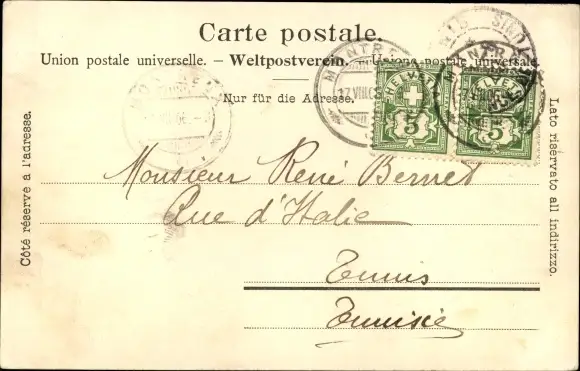 Carte postale.
Union postale universelle. — Weltpostverein. — Unione postale universale.
Nur für die Adresse.
MONTREUX
17.VIII.
HELVETIA
5
HELVETIA
5
Côté réservé à l'adresse.
Lato riservato all indirizzo.
Monsieur René Bernet
Rue d'Italie
Tunis
Tunisie